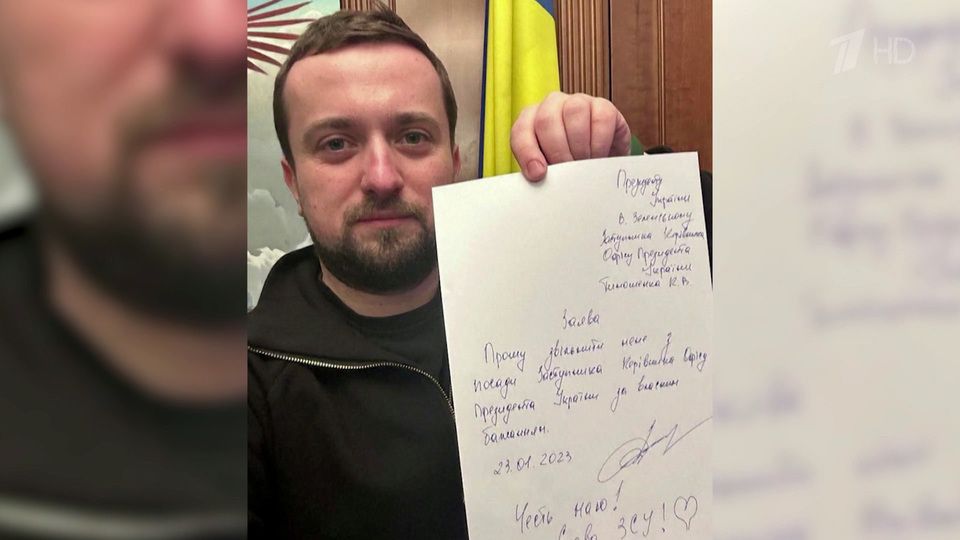 1 HD
Президенту
України
В. Зеленському
Заступника Керівника
Офісу Президента
України
Тимошенка К.В.
Заява
Прошу звільнити мене з
посади Заступника Керівника Офісу
Президента України за власним
бажанням.
23.01.2023
Честь маю!
Слава ЗСУ!